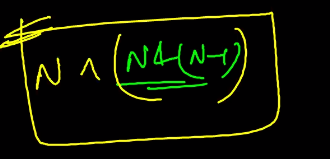 N ^ (N&(N-1))